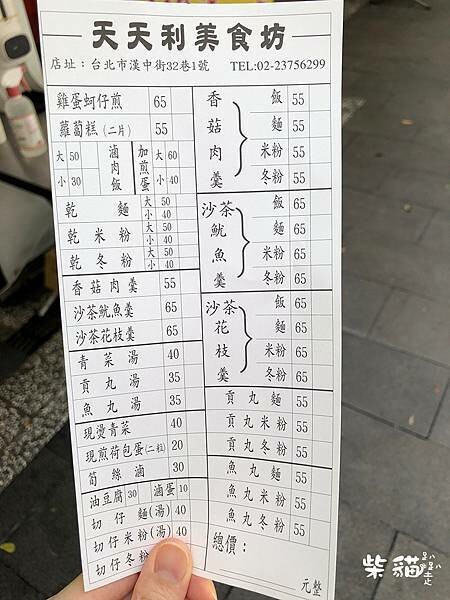 天天利美食坊
店址：台北市漢中街32巷1號 TEL:02-23756299
雞蛋蚵仔煎 65
蘿蔔糕(二片) 55
滷肉飯 大 50 小 30
加煎蛋 大 60 小 40
乾麵 大 50 小 40
乾米粉 大 50 小 40
乾冬粉 大 50 小 40
香菇肉羹 55
沙茶魷魚羹 65
沙茶花枝羹 65
青菜湯 40
貢丸湯 35
魚丸湯 35
現燙青菜 40
現煎荷包蛋(二粒) 20
筍絲滷 30
油豆腐 30 滷蛋 10
切仔麵(湯) 40
切仔米粉(湯) 40
切仔冬粉
香菇肉羹
飯 55
麵 55
米粉 55
冬粉 55
沙茶魷魚羹
飯 65
麵 65
米粉 65
冬粉 65
沙茶花枝羹
飯 65
麵 65
米粉 65
冬粉 65
貢丸麵 55
貢丸米粉 55
貢丸冬粉 55
魚丸麵 55
魚丸米粉 55
魚丸冬粉 55
總價：
元整
柴貓趴趴走